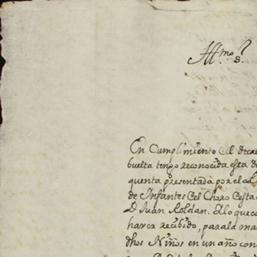 Yll.mo S.r
En Cumplimiento del decre
buelta tengo reconocida esta d
quenta presentada por el
de Infantes del Choro desta
D. Juan Roldan. Lo que
haver recibido, para la ma
dhos Niños en un año con